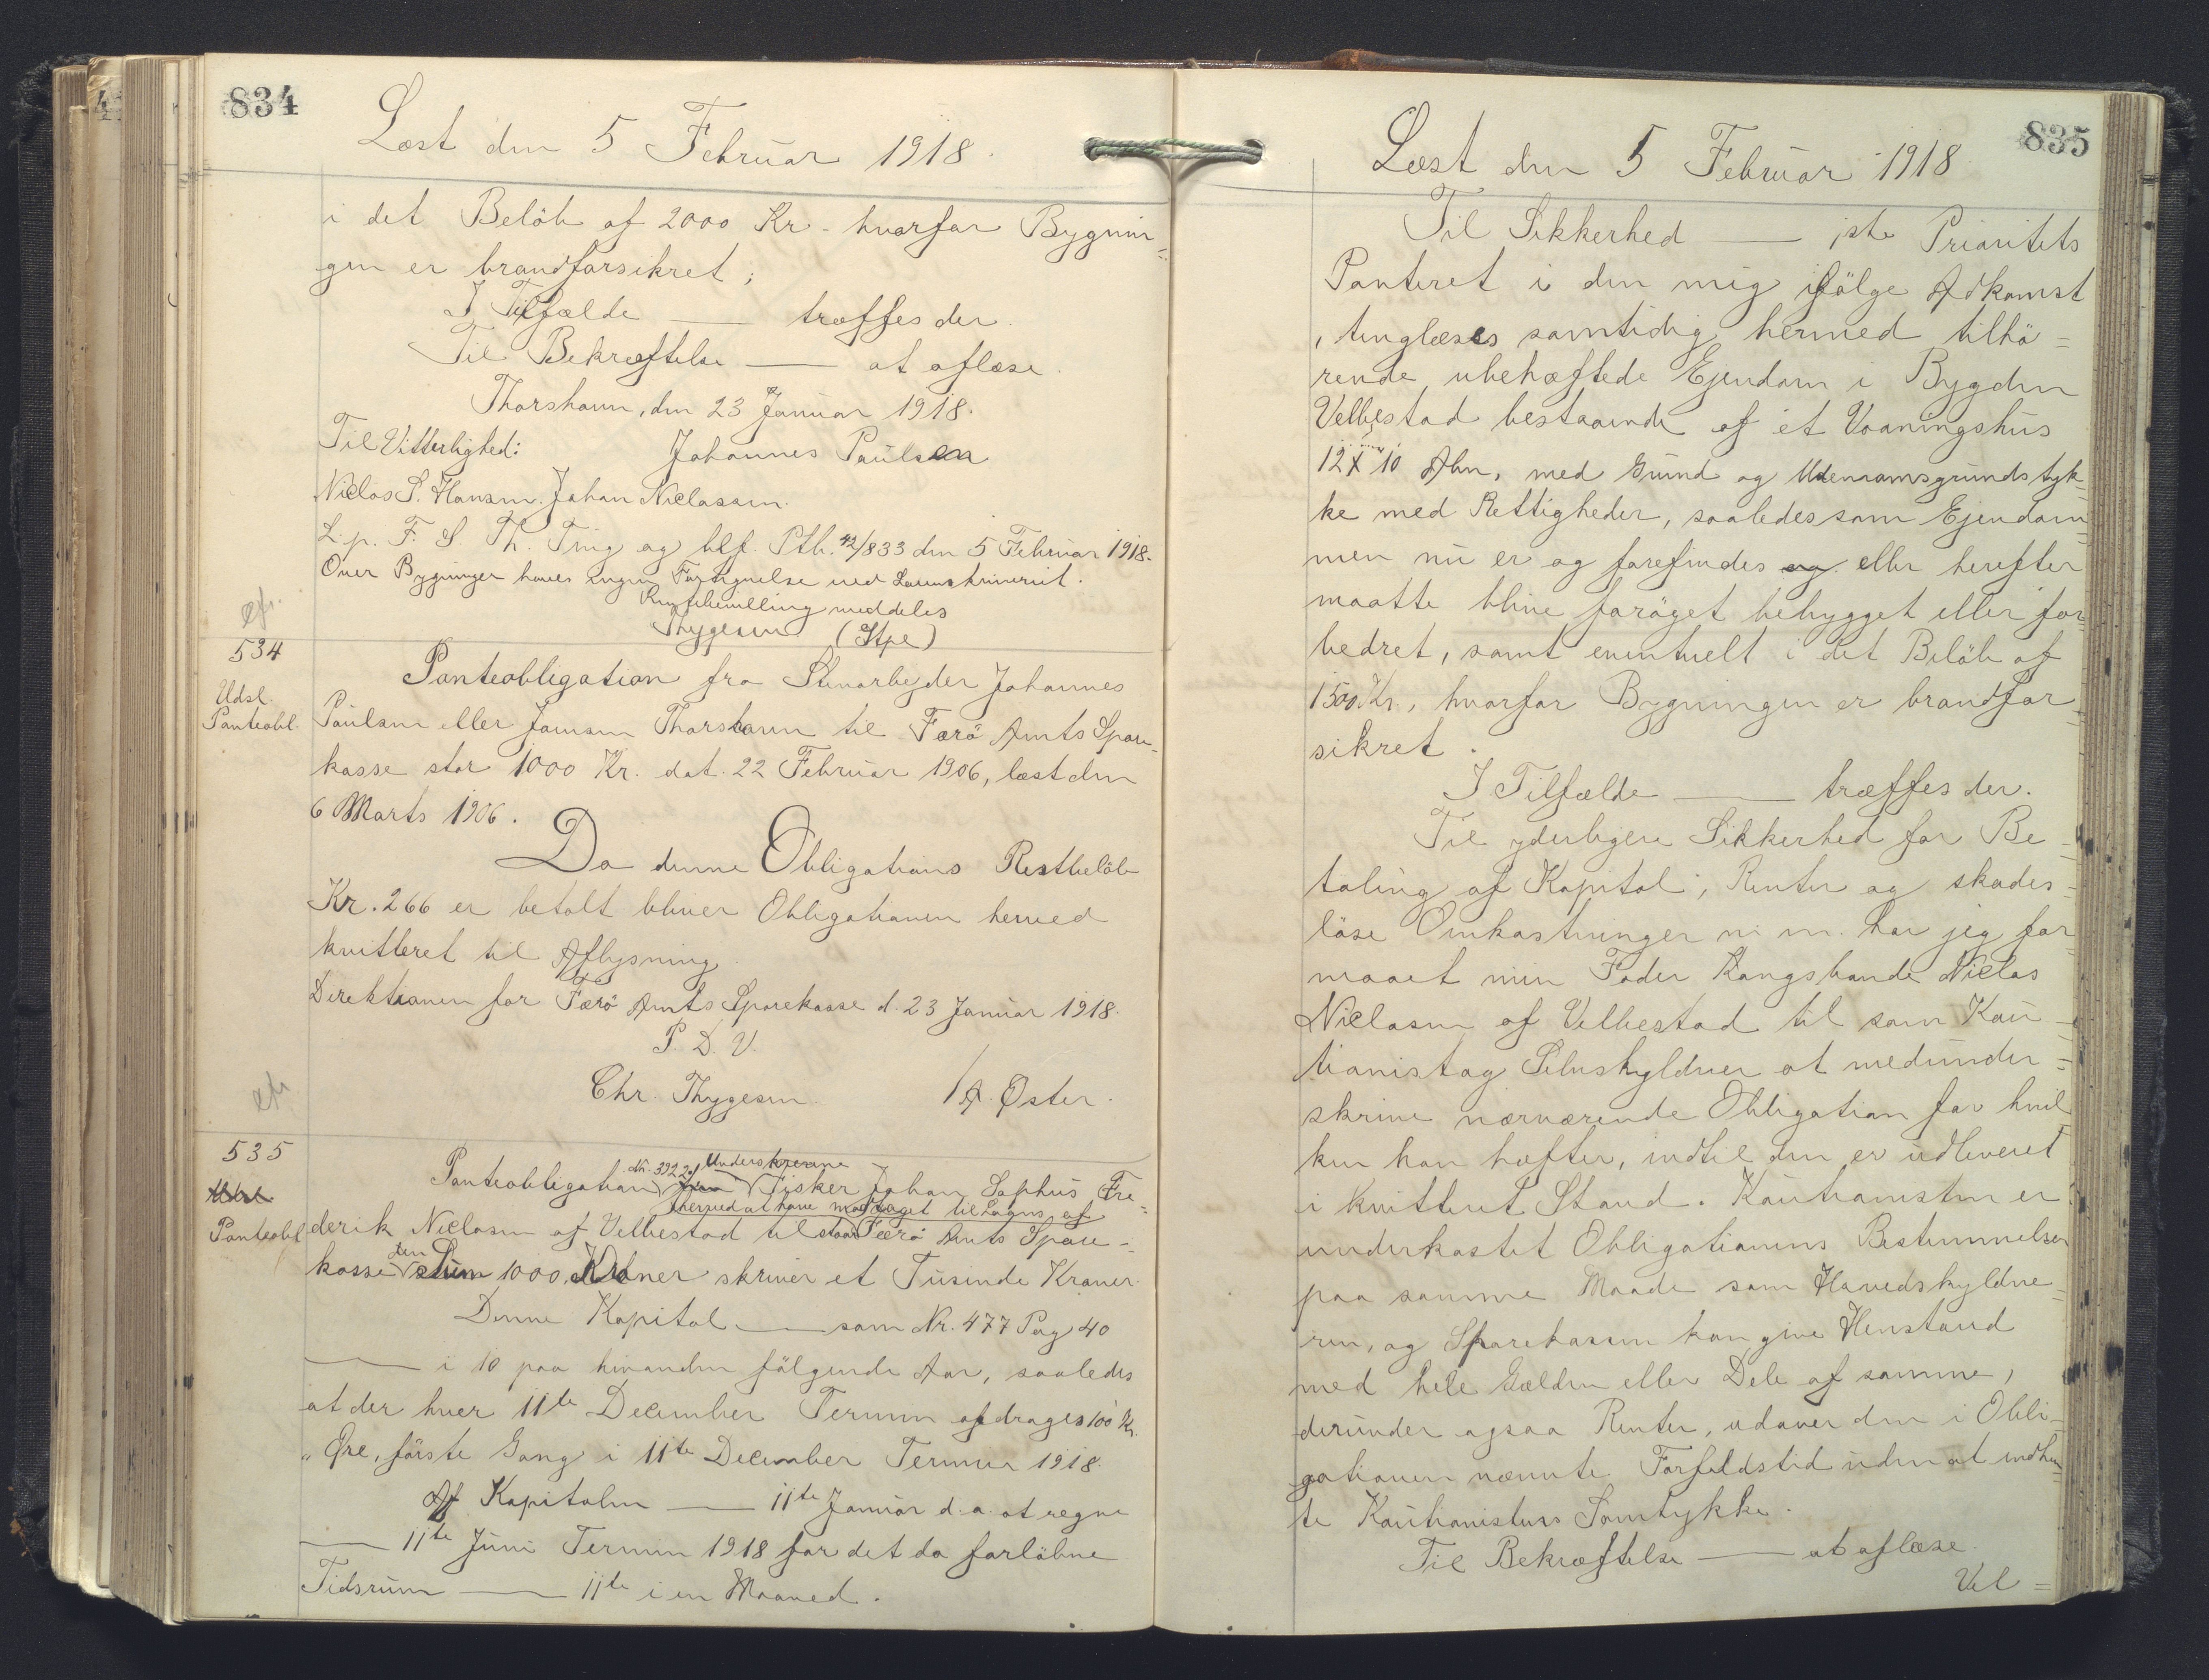 834
Læst den 5 Februar 1918.
i det Belöb af 2000 Kr. hvorfor Bygnin=
gen er brandforsikret;
I Tilfælde — træffes der.
Til Bekræftelse — at aflæse.
Thorshavn, den 23 Januar 1918.
Til Vitterlighed: Johannes Paulsen
Niclas S. Hansen. Johan Niclassen.
L. p. F. S Th. Ting og blf. Ptb. 42/833 den 5 Februar 1918.
Over Bygninger haves ingen Fortegnelse ved Laanskriveriet.
meddeles
Thygesen (Stpe)
534
Udsl.
Panteobl.
Panteobligation fra Stenarbejder Johannes
Paulsen eller Joensen Thorshavn til Færö Amts Spare=
kasse stor 1000 Kr. dat. 22 Februar 1906, læst den
6 Marts 1906.
Da denne Obligations Restbelöb
Kr. 266 er betalt bliver Obligationen herved
kvitteret til Aflysning.
Direktionen for Færö Amts Sparekasse d. 23 Januar 1918.
P. D. V.
Chr. Thygesen. / A. Øster.
535
Udsl
Panteobl
Nr. 3922 Underskrevne
Panteobligation Fisker Johan Sophus Fre=
herved at have modtaget tillaans af
derik Niclasen af Velbestad tilstaar Færö Amts Spare=
kasse den Sum 1000 Kroner skriver et Tusinde Kroner.
Denne Kapital — som Nr. 477 Pag 40
— i 10 paa hinanden fölgende Aar, saaledes
at der hver 11te December Termin afdrages 100 Kr.
" Øre, förste Gang i 11te December Termin 1918.
Af Kapitalen — 11te Januar d. a. at regne
— 11te Juni Termin 1918 for det da forlöbne
Tidsrum — 11te i en Maaned.
835
Læst den 5 Februar 1918
Til Sikkerhed — 1ste Prioritets
Panteret i den mig ifölge Adkomst
, tinglæses samtidig hermed tilhö=
rende, ubehæftede Ejendom i Bygden
Velbestad bestaaende af et Vaaningshus
12 X 10 Aln, med Grund og Udenramsgrundstyk=
ke med Rettigheder, saaledes som Ejendom=
men nu er og forefindes og eller herefter
maatte blive foröget bebygget eller for=
bedret, samt eventuelt i det Belöb af
1500 Kr., hvorfor Bygningen er brandfor=
sikret.
I Tilfælde — træffes der.
Til yderligere Sikkerhed for Be=
taling af Kapital, Renter og skades=
löse Omkostninger m. m. har jeg for=
maaet min Fader Kongsbonde Niclas
Niclasen af Velbestad til som Kau=
tionist og Selvskyldner at medunder=
skrive nærværende Obligation for hvil=
ken han hæfter, indtil den er udleveret
i kvitteret Stand. Kautionisten er
underkastet Obligationens Bestemmelser
paa samme Maade som Hovedskyldne=
ren, og Sparekassen kan give Henstand
med hele Gælden eller Dele af samme,
derunder ogsaa Renter, udover den i Obli=
gationen nævnte Forfaldstid uden at indhen=
te Kautionistens Samtykke.
Til Bekræftelse — at aflæse.
Vel=